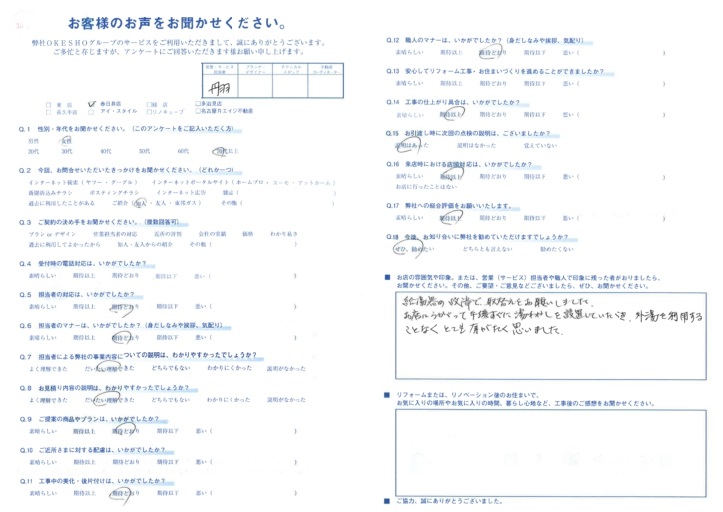 お客様のお声をお聞かせください。
弊社OKESHOグループのサービスをご利用いただきまして、誠にありがとうございます。
ご多忙と存じますが、アンケートにご回答いただきます様お願い申し上げます。
丹羽
春日井店
アイ・スタイル
リノキューブ
名古屋市エイジ不動産
Q.1 性別・年代をお聞かせください。（このアンケートをご記入いただく方）
男性 女性
20代 30代 40代 50代 60代 70代以上
Q.2 今回、お問合せいただいたきっかけをお聞かせください。（どれか一つ）
インターネット検索（ヤフー・グーグル） インターネットポータルサイト（ホームプロ・スーモ・アットホーム）
新聞折込みチラシ ポスティングチラシ インターネット広告 雑誌（ ）
過去に利用したことがある ご紹介（知人・友人・東邦ガス） その他（ ）
Q.3 ご契約の決め手をお聞かせください。（複数回答可）
プラン or デザイン 営業担当者の対応 近所の評判 会社の実績 価格 わかり易さ
過去に利用してよかったから 知人・友人からの紹介 その他（ ）
Q.4 受付時の電話対応は、いかがでしたか？
素晴らしい 期待以上 期待どおり 期待以下 悪い（ ）
Q.5 担当者の対応は、いかがでしたか？
素晴らしい 期待以上 期待どおり 期待以下 悪い（ ）
Q.6 担当者のマナーは、いかがでしたか？（身だしなみや挨拶、気配り）
素晴らしい 期待以上 期待どおり 期待以下 悪い（ ）
Q.7 担当者による弊社の事業内容についての説明は、わかりやすかったでしょうか？
よく理解できた だいたい理解できた どちらでもない わかりにくかった 説明がなかった
Q.8 お見積り内容の説明は、わかりやすかったでしょうか？
よく理解できた だいたい理解できた どちらでもない わかりにくかった 説明がなかった
Q.9 ご提案の商品やプランは、いかがでしたか？
素晴らしい 期待以上 期待どおり 期待以下 悪い（ ）
Q.10 ご近所さまに対する配慮は、いかがでしたか？
素晴らしい 期待以上 期待どおり 期待以下 悪い（ ）
Q.11 工事中の美化・後片付けは、いかがでしたか？
素晴らしい 期待以上 期待どおり 期待以下 悪い（ ）
Q.12 職人のマナーは、いかがでしたか？（身だしなみや挨拶、気配り）
素晴らしい 期待以上 期待どおり 期待以下 悪い（ ）
Q.13 安心してリフォーム工事・お住まいづくりを進めることができましたか？
素晴らしい 期待以上 期待どおり 期待以下 悪い（ ）
Q.14 工事の仕上がり具合は、いかがでしたか？
素晴らしい 期待以上 期待どおり 期待以下 悪い（ ）
Q.15 お引渡し時に次回の点検の説明は、ございましたか？
説明はあった 説明はなかった 覚えていない
Q.16 来店時における店頭対応は、いかがでしたか？
素晴らしい 期待以上 期待どおり 期待以下 悪い（ ）
お店に行ったことはない
Q.17 弊社への総合評価をお願いいたします。
素晴らしい 期待以上 期待どおり 期待以下 悪い（ ）
Q.18 今後、お知り合いに弊社を勧めていただけますでしょうか？
ぜひ、勧めたい どちらとも言えない 勧めたくない
■ お店の雰囲気や印象。または、営業（サービス）担当者や職人で印象に残った者がおりましたら、
お聞かせください。その他、ご要望・ご意見などございましたら、ぜひ、お聞かせください。
給湯器の故障で、取替えをお願いしました。
ことなくとても有りがたく思いました。
■ リフォームまたは、リノベーション後のお住まいで、
お気に入りの場所やお気に入りの時間、暮らし心地など、工事後のご感想をお聞かせください。
■ ご協力、誠にありがとうございました。